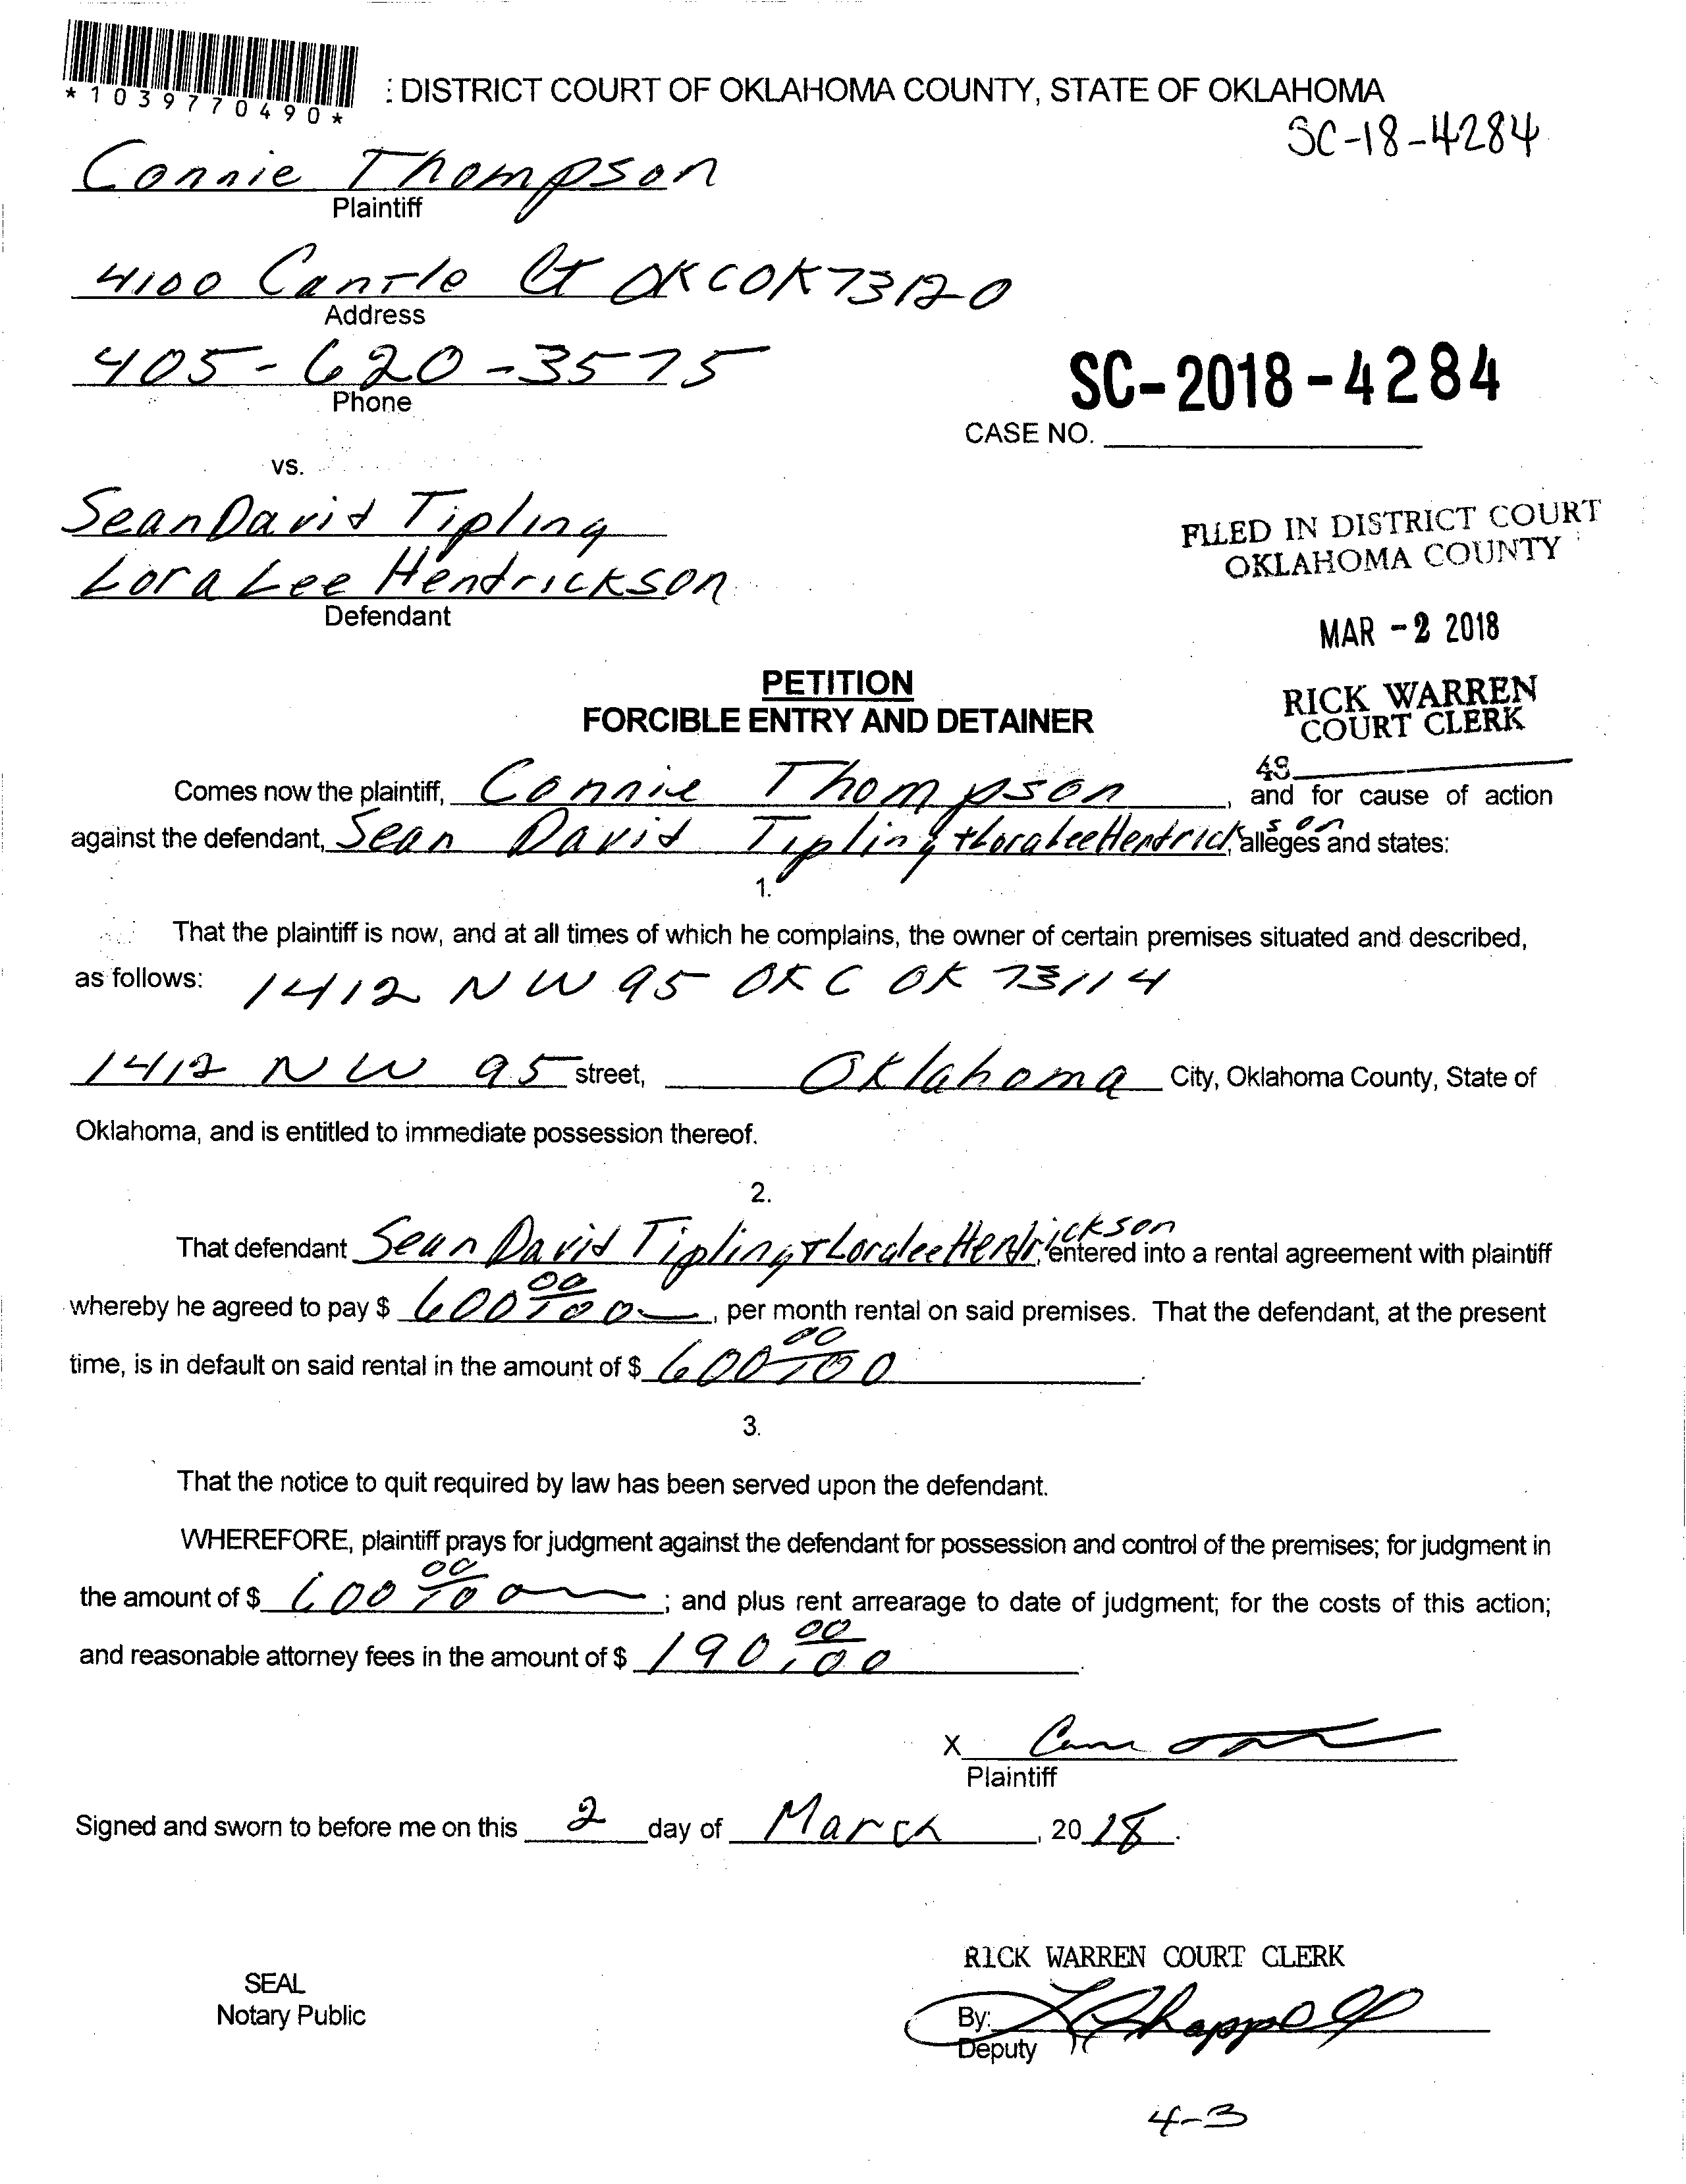 *1039770490*
: DISTRICT COURT OF OKLAHOMA COUNTY, STATE OF OKLAHOMA
SC-18-4284
Connie Thompson
Plaintiff
4100 Cantle Ct OKC OK 73120
Address
405-620-3575
Phone
SC-2018-4284
CASE NO.
vs.
Sean David Tipling
Lora Lee Hendrickson
Defendant
FILED IN DISTRICT COURT
OKLAHOMA COUNTY
MAR -2 2018
PETITION
FORCIBLE ENTRY AND DETAINER
RICK WARREN
COURT CLERK
48
Comes now the plaintiff, Connie Thompson, and for cause of action
against the defendant, Sean David Tipling + Lora Lee Hendrickson, alleges and states:
1.
That the plaintiff is now, and at all times of which he complains, the owner of certain premises situated and described,
as follows: 1412 NW 95 OKC OK 73114
1412 NW 95 street, Oklahoma City, Oklahoma County, State of
Oklahoma, and is entitled to immediate possession thereof.
2.
That defendant Sean David Tipling + Loralee Hendrickson, entered into a rental agreement with plaintiff
whereby he agreed to pay $ 600 00/100, per month rental on said premises. That the defendant, at the present
time, is in default on said rental in the amount of $ 600 00/100.
3.
That the notice to quit required by law has been served upon the defendant.
WHEREFORE, plaintiff prays for judgment against the defendant for possession and control of the premises; for judgment in
the amount of $ 600 00/100; and plus rent arrearage to date of judgment; for the costs of this action;
and reasonable attorney fees in the amount of $ 190 00/100.
X
Plaintiff
Signed and sworn to before me on this 2 day of March, 2018.
RICK WARREN COURT CLERK
SEAL
Notary Public
By:
Deputy
4-3